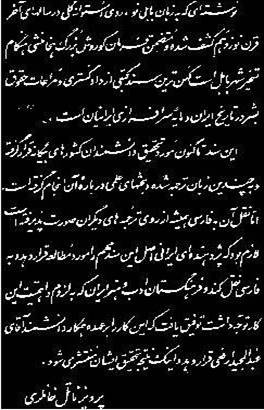 نوشته‌ای که به زبان بابلی نو، روی استوانه گلی در سالهای آخر
قرن نوزدهم کشف شده و متضمن فرمان کوروش بزرگ هخامنشی هنگام
تسخیر شهر بابل است کهن‌ترین سند کتبی از دادگستری و مراعات حقوق
بشر در تاریخ ایران و مایهٔ سرافرازی ایرانیان است.
این سند تاکنون مورد تحقیق دانشمندان کشورهای بیگانه قرار گرفته
و به چندین زبان ترجمه شده و بحثهای علمی دربارهٔ آن انجام گرفته است.
اما نقل آن به فارسی همیشه از روی ترجمه‌های دیگران صورت پذیرفته است
لازم بود که پژوهنده‌ای ایرانی اصل این سند مهم را مورد مطالعه قرار دهد و به
فارسی نقل کند و فرهنگستان ادب و هنر ایران که به لزوم و اهمیت این
کار توجه داشت توفیق یافت که این کار را بر عهده همکار دانشمند آقای
عبدالمجید ارفعی قرار دهد و اینک نتیجهٔ تحقیق ایشان منتشر می‌شود.
پرویز ناتل خانلری